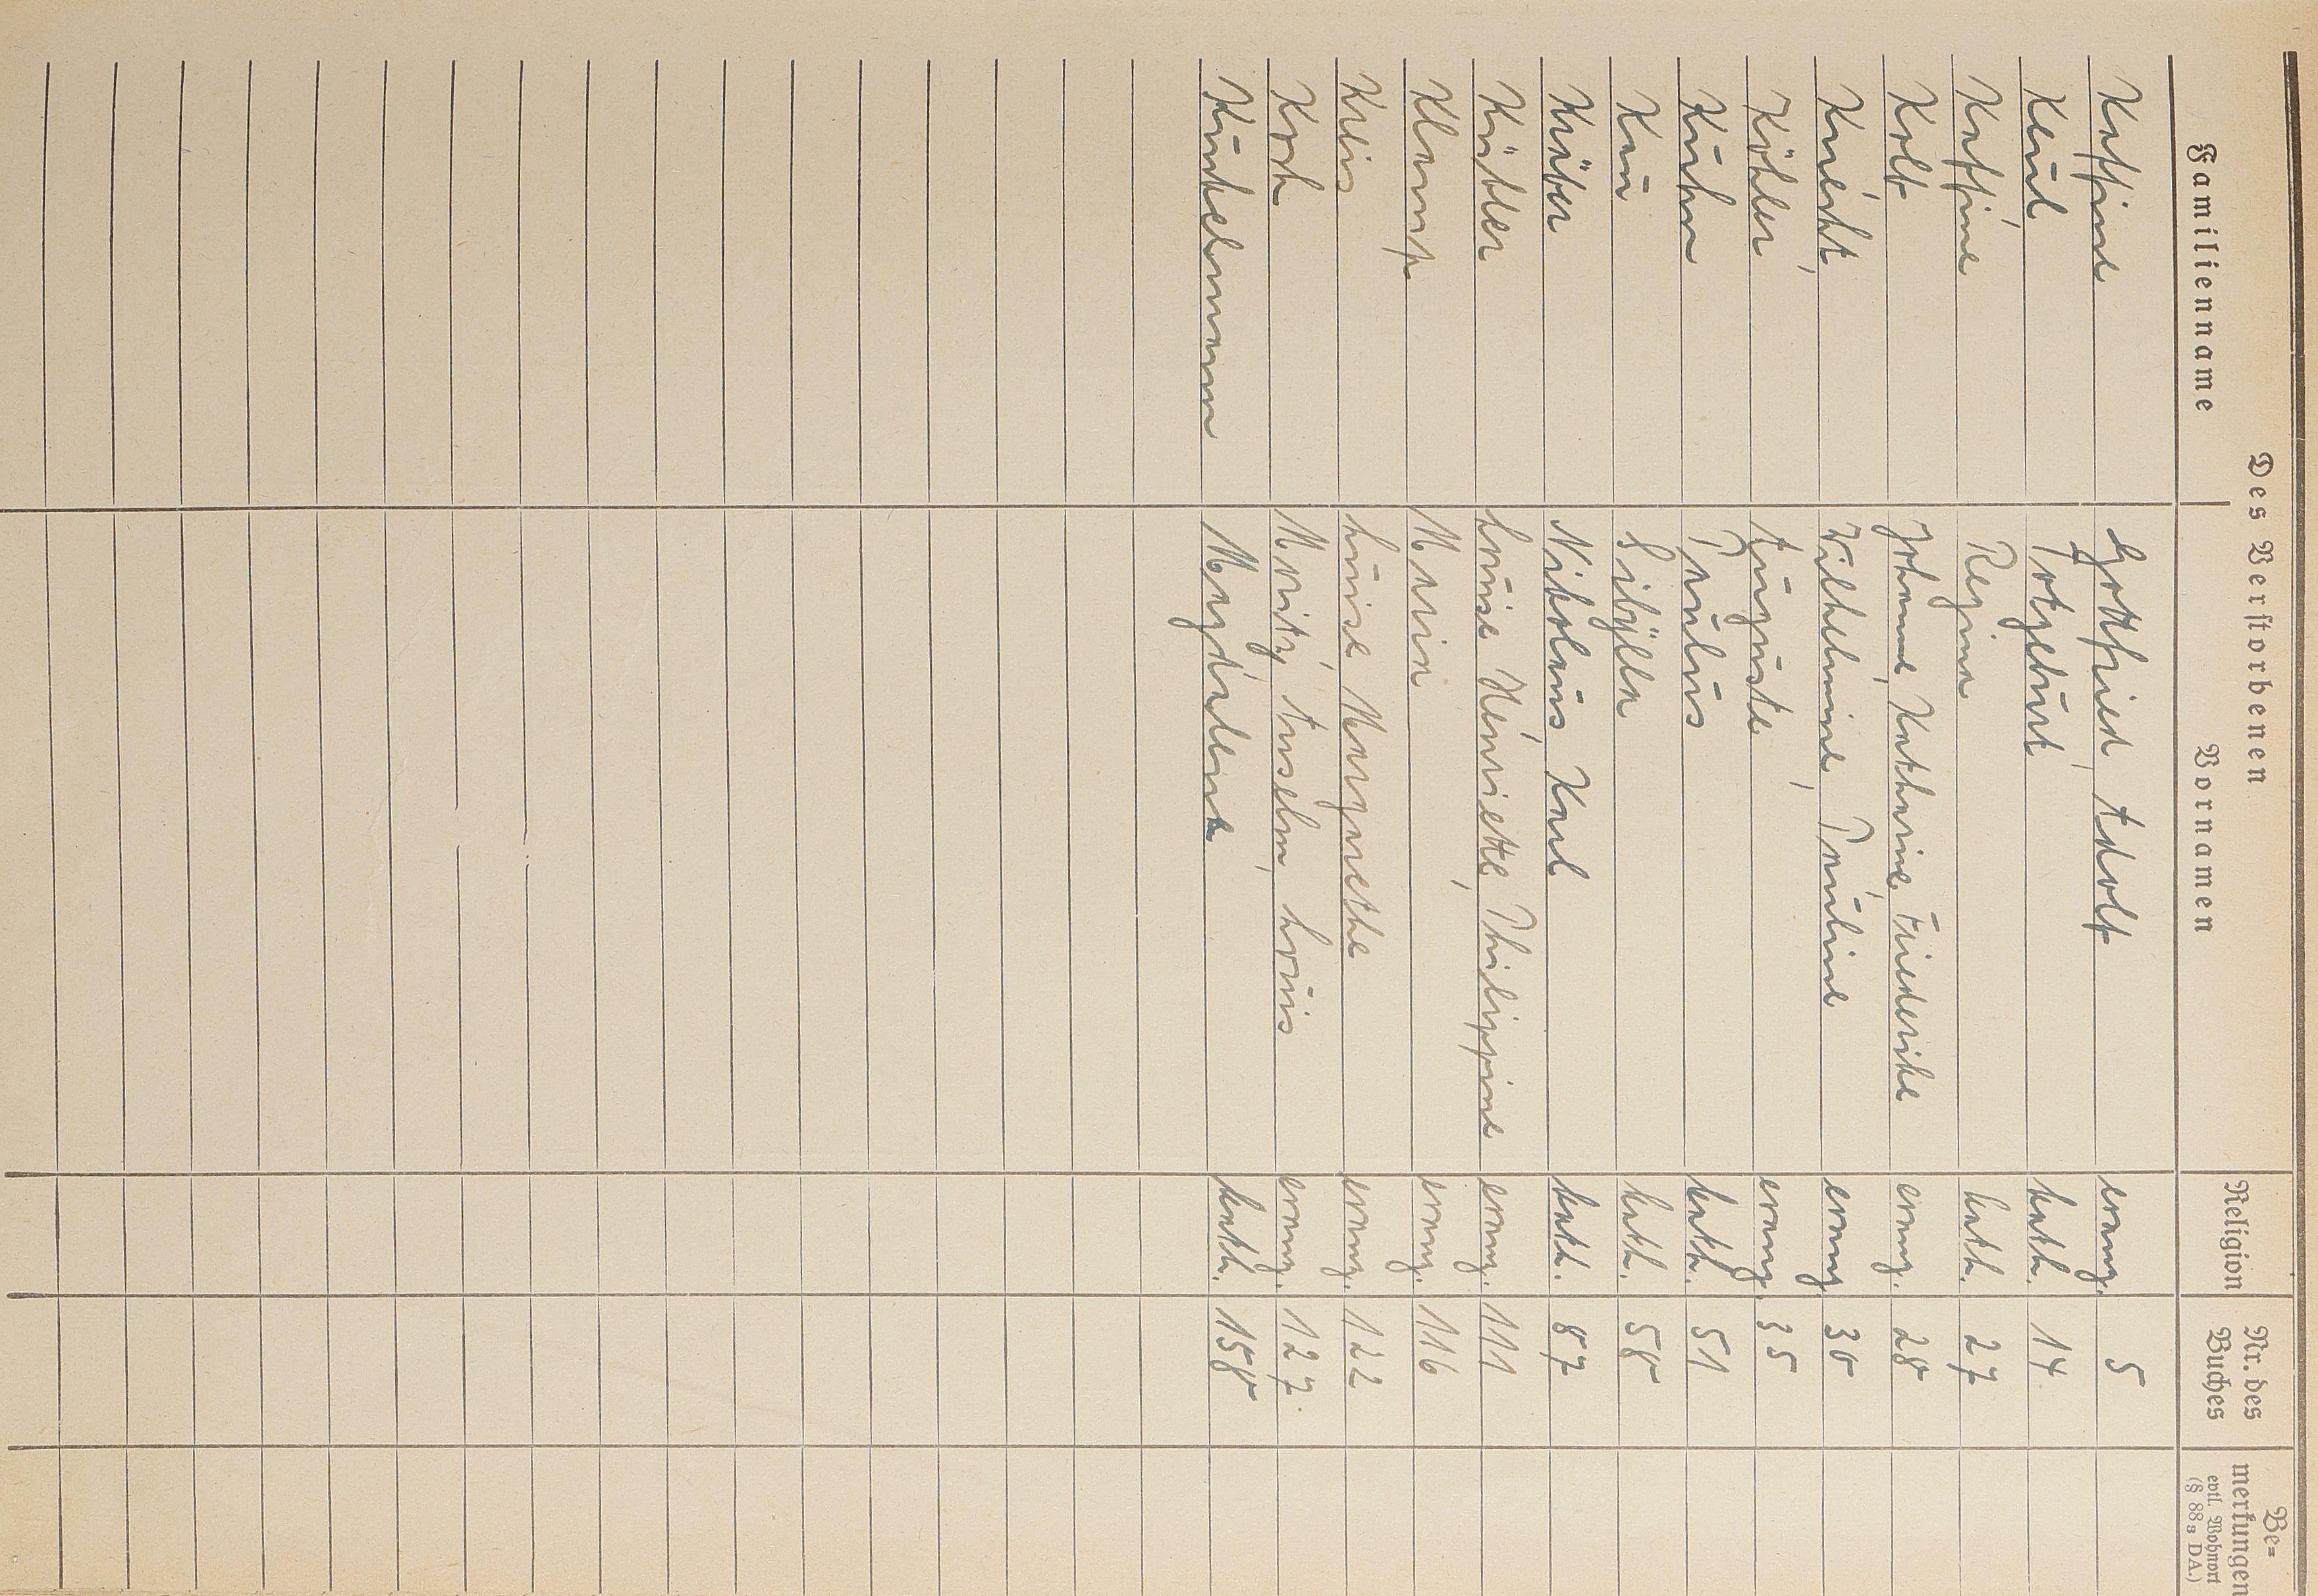 Des Verstorbenen
Familienname Vornamen Religion Nr. des Buches Be=merkungen evtl. Wohnort (§ 88 3 DA.)
Kaffine Gottfried Adolf evang. 5
Keul Totgeburt kath. 14
Kaffine Regina kath. 27
Kolb Johanna Katharina Friederike evang. 28
Knecht Wilhelmine Pauline evang. 30
Köhler Auguste evang. 35
Kuhn Paulus kath. 51
Kau Sibÿlla kath. 58
Kröber Nikolaus Karl kath. 87
Kübler Louise Henriette Philippine evang. 111
Klamp Maria evang. 116
Kreis Luise Margarethe evang. 122
Koch Moritz Anselm Louis evang. 127
Kunkelmann Magdalena kath. 158